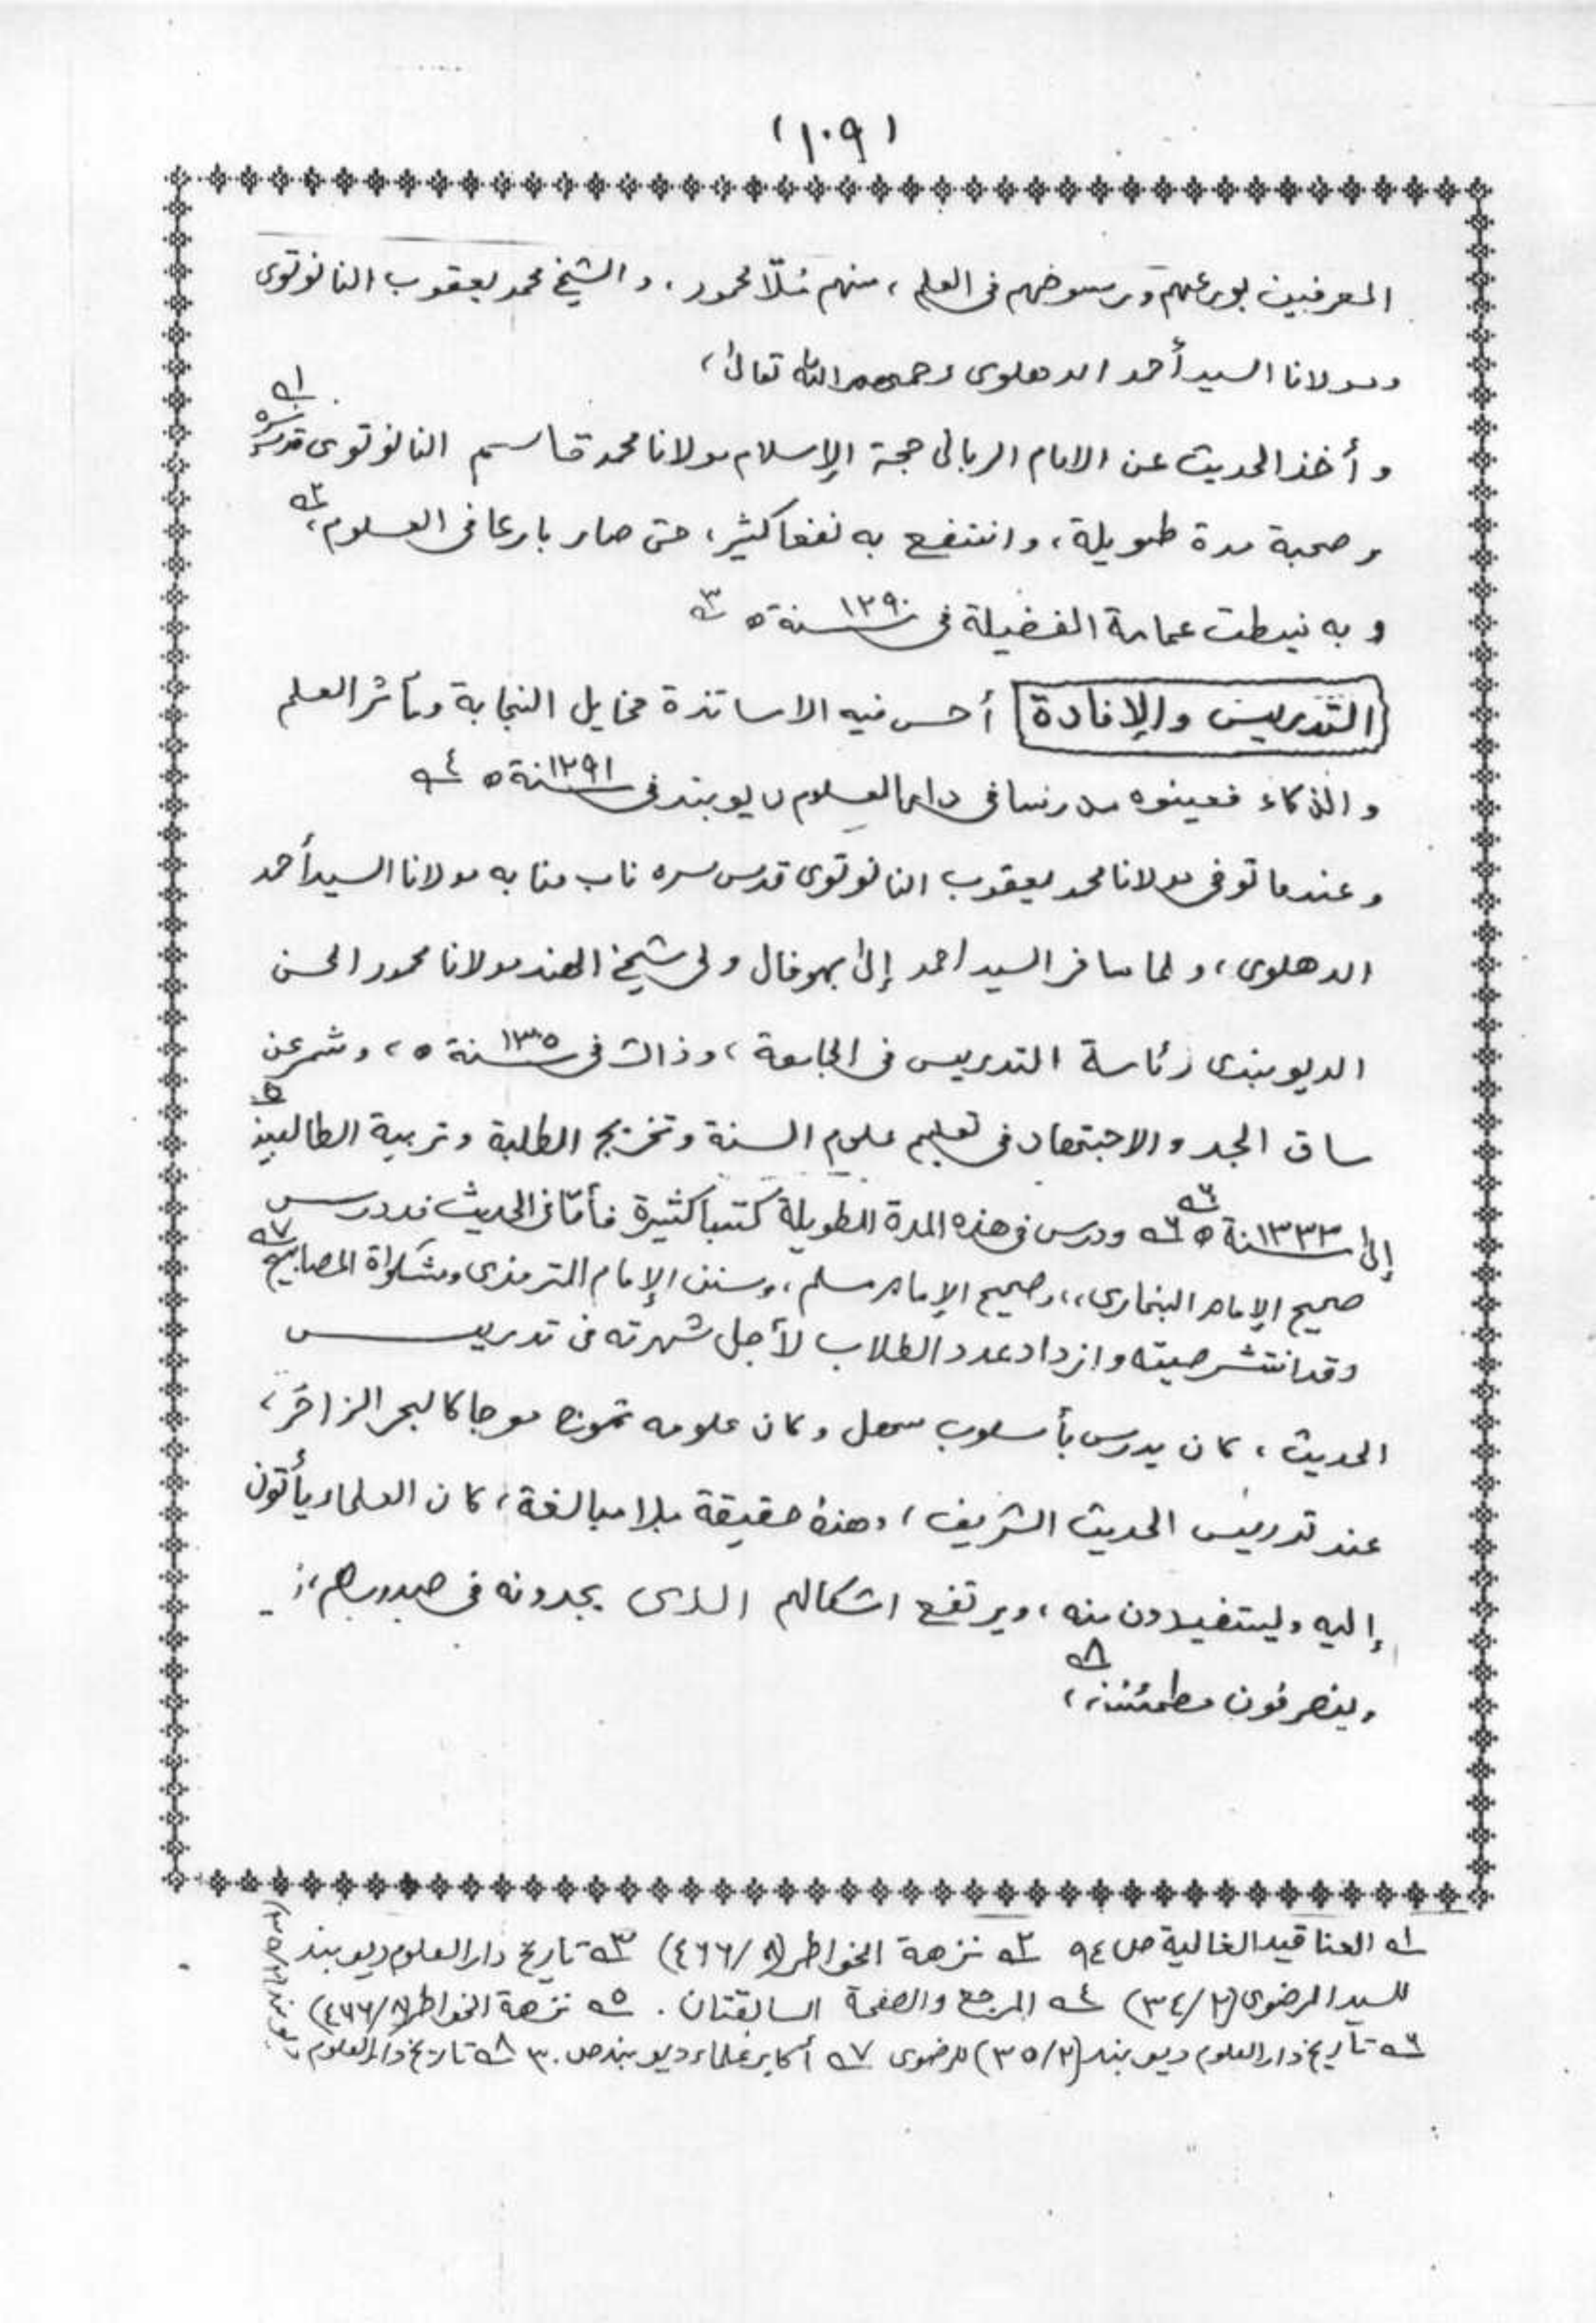 (١٠٩)
المعرفين بورعهم ورسوخهم فى العلم ، منهم مُلّا محمود ، و الشيخ محمد يعقوب النانوتوى
ومولانا السيد أحمد الدهلوى رحمهم الله تعالىٰ ،
و أخذ الحديث عن الامام الربانى حجة الإسلام مولانا محمد قاسم النانوتوى قدس سره ١ـه
وصحبة مدة طويلة ، وانتفع به نفعا كثير ، حتى صار بارعا فى العلوم ، ٢ـه
و به نيطت عمامة الفضيلة فى سنة ١٢٩٠ ه ٣ـه
التدريس والإفادة أحس فيه الاساتذة مخايل النجابة ومآثر العلم
و الذكاء فعينوه مدرسا فى دار العلوم ديوبند فى سنة ١٢٩١ ه ٤ـه
وعندما توفى مولانا محمد يعقوب النانوتوى قدس سره ناب منابه مولانا السيد أحمد
الدهلوى ، ولما سافر السيد احمد إلىٰ بهوفال ولى شيخ الهند مولانا محمود الحسن
الديوبندى رئاسة التدريس فى الجامعة ، وذالك فى سنة ١٣٠٥ ه ، وشمر عن
ساق الجد والاجتهاد فى تعليم علوم السنة وتخريج الطلبة وتربية الطالبين ٥
إلىٰ سنة ١٣٣٣ ه ٦ـه ٦ـه ودرس فى هذه المدة الطويلة كتبا كثيرة فأمّا فى الحديث فدرس
صحيح الإمام البخارى ،، وصحيح الإمام مسلم ، وسنن الإمام الترمذى ومشكواة المصابيح ٧ـه
وقد انتشر صيته وازداد عدد الطلاب لأجل شهرته فى تدريس
الحديث ، كان يدرس بأسلوب سهل وكان علومه تموج موجا كالبحر الزاخر ،
عند تدريس الحديث الشريف ، وهذه حقيقة بلا مبالغة ، كان العلماء يأتون
إليه وليستفيدون منه ، ويرتفع اشكالهم الذى يجدونه فى صدورهم ،
وينصرفون مطمئنين ، ٨ـه
١ـه العناقيد الغالية ص ٩٤ ٢ـه نزهة الخواطر (٨/٤٦٦) ٣ـه تاريخ دار العلوم ديوبند
للسيد المرضوى (٢/٣٤) ٤ـه المرجع والصفحة السابقتان . ٥ـه نزهة الخواطر (٨/٤٦٦)
٦ـه تاريخ دار العلوم ديوبند (٢/٣٥) للرضوى ٧ـه أكابر علماء ديوبند ص ٣٠ ٨ـه تاريخ دار العلوم
ديوبند (٢/٣٥)